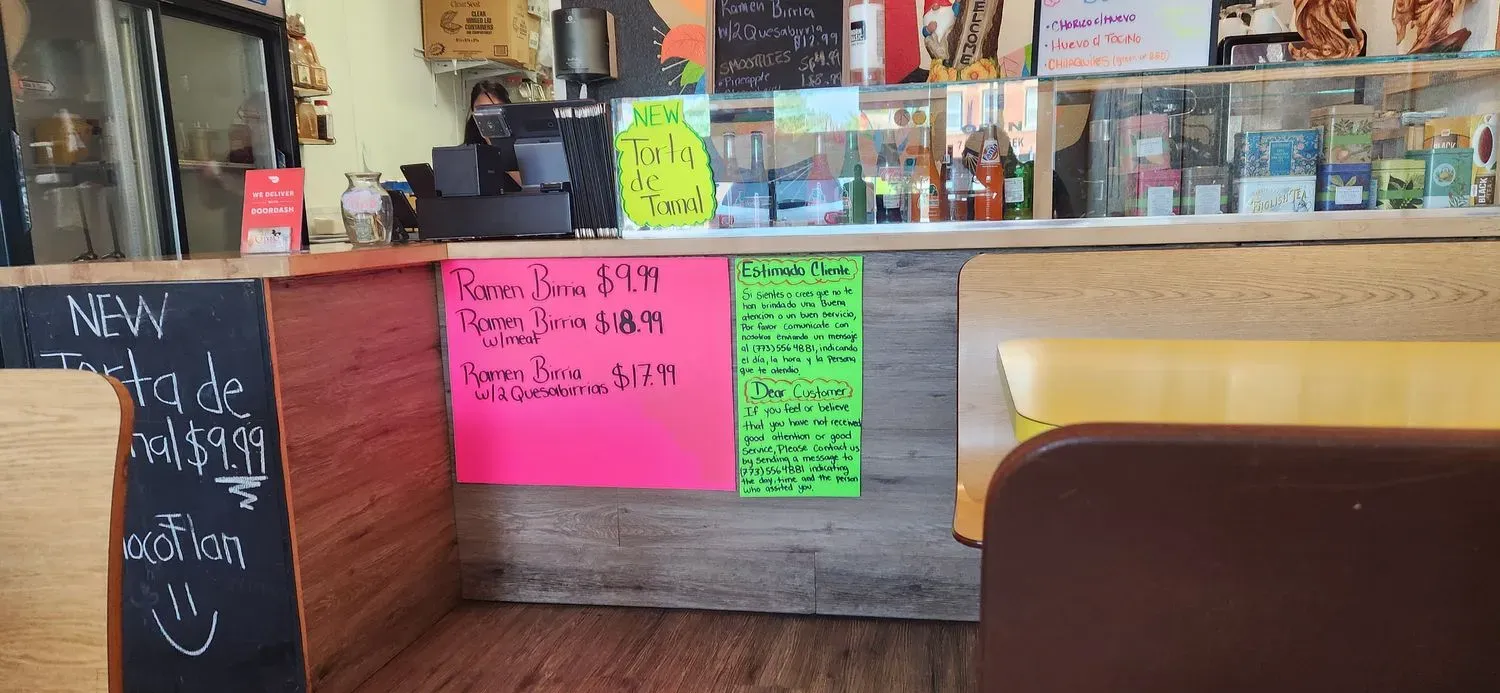 ClearSeal
CLEAR
HINGED LID
CONTAINERS
Ramen Birria
w/2 Quesabirria
$12.99
SMOOTHIES
Pineapple
WELCOME
• CHORIZO c/HUEVO
• HUEVO c/ TOCINO
• CHILAQUILES
WE DELIVER
WITH
DOORDASH
NEW
Torta
de
Tamal
ENGLISH TEA
BLACK
NEW
Torta de
mal $9.99
ocoFlan
Ramen Birria $9.99
Ramen Birria $18.99
w/meat
Ramen Birria $17.99
w/2 Quesabirrias
Estimado Cliente
Si sientes o crees que no te
han brindado una Buena
atencion o un buen servicio,
Por favor comunicate con
nosotros enviando un mensaje
al (773)5564881, indicando
el día, la hora y la persona
que te atendio.
Dear Customer
If you feel or believe
that you have not received
good attention or good
Service, Please contact us
by sending a message to
(773)5564881 indicating
the day, time and the person
who assited you.